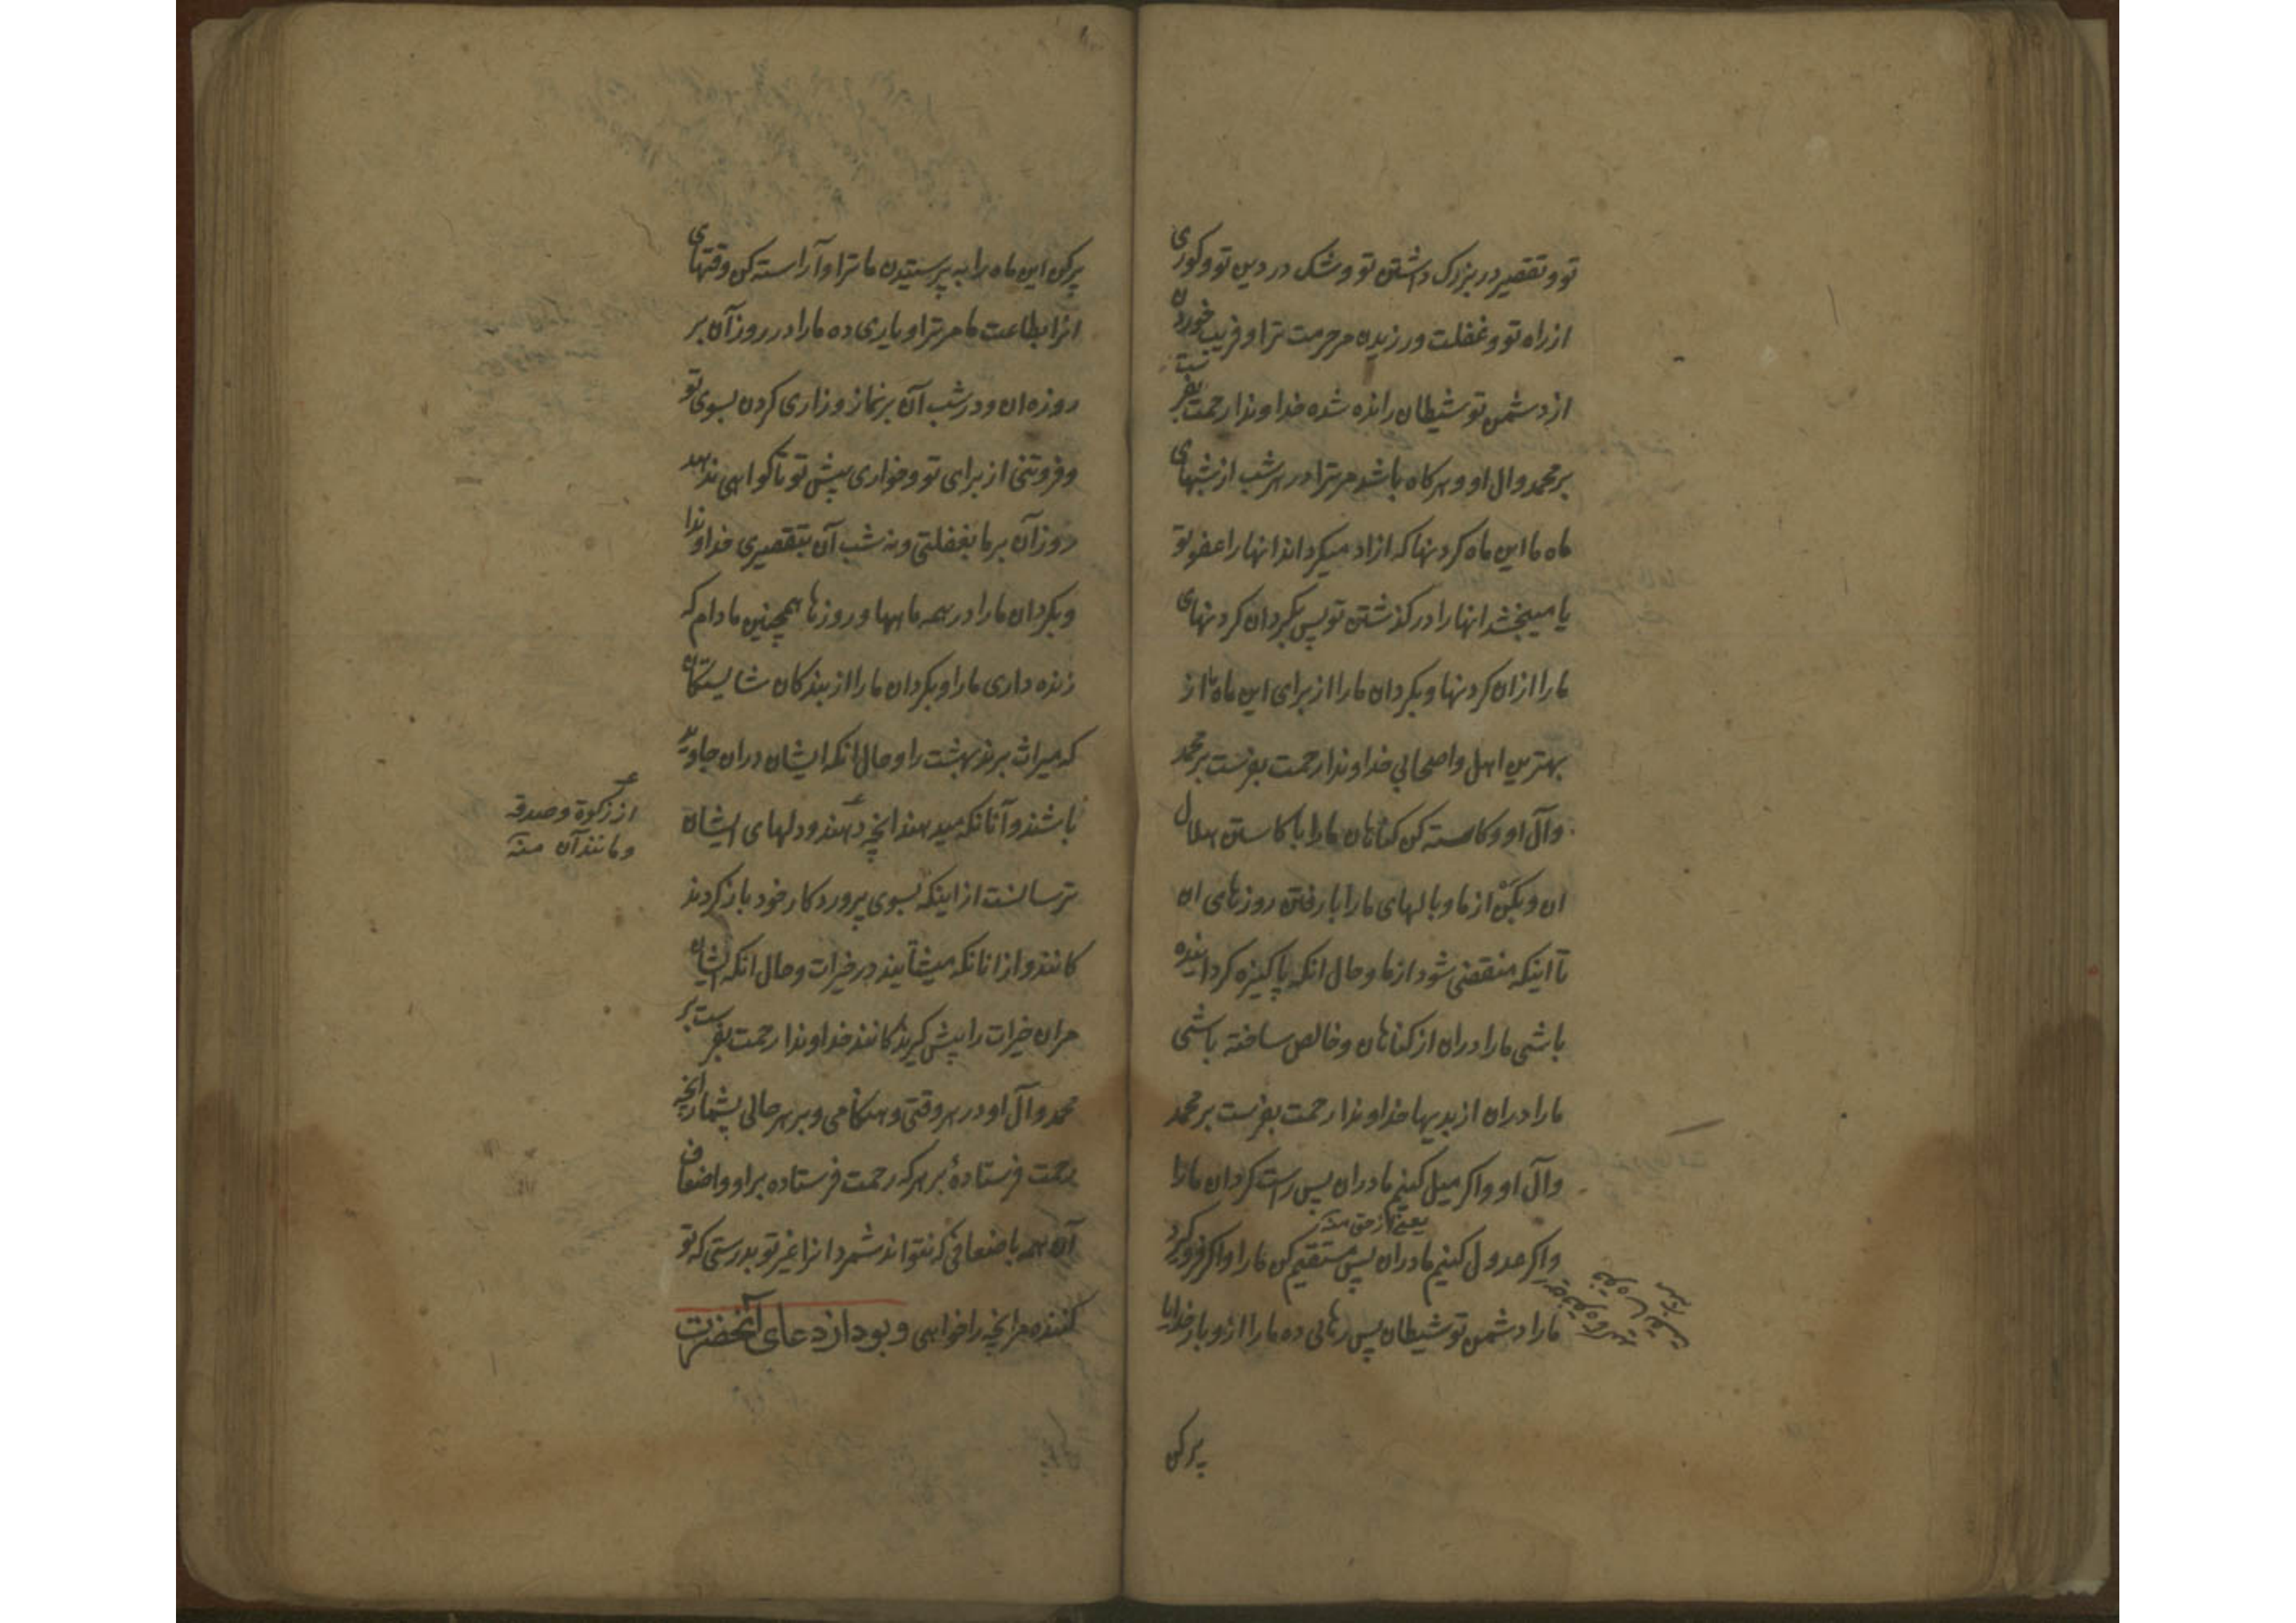 تو و تقصیر در بزرک داشتن تو و شک در دین تو و کوری
از راه تو و غفلت ورزیدن مر حرمت ترا و فریب خوردن
از دشمن تو شیطان رانده شده خداوندا رحمت بفرست
بر محمد وال او و هرکاه باشد مر ترا در هر شب از شبهای
ماه ما این ماه کردنها که ازاد میکرداند انها را عفو تو
یا میبخشد انها را درکذشتن تو پس بکردان کردنهای
ما را ازان کردنها و بکردان ما را از برای این ماه ما از
بهترین اهل و اصحابی خداوندا رحمت بفرست بر محمد
وآل او و کاسته کن کناهان ما را با کاستن هلال
ان و بکن از ما وبالهای ما را با رفتن روزهای ان
تا اینکه منقضی شود از ما و حال انکه پاکیزه کردانیده
باشی ما را دران از کناهان و خالص ساخته باشی
ما را دران از بدیها خداوندا رحمت بفرست بر محمد
وآل او و اکر میل کنیم ما دران پس راست کردان ما را
یعنی از حق منه
و اکر عدول کنیم ما دران پس مستقیم کن ما را و اکر فرو کیرد
ما را دشمن تو شیطان پس رهائی ده ما را ازو بار خدایا
پر کن
پر کن این ماه را به پرستیدن ما ترا و آراسته کن وقتهای
انرا بطاعت ما مر ترا و یاری ده ما را در روز آن بر
روزه ان و در شب آن بر نماز و زاری کردن بسوی تو
و فروتنی از برای تو و خواری پیش تو تا کواهی ندهد
روز آن بر ما بغفلتی و نه شب آن بتقصیری خداوندا
و بکردان ما را در همه ماهها و روزها همچنین مادام که
زنده داری ما را و بکردان ما را از بندکان شایستکان
که میراث برند بهشت را و حال انکه ایشان دران جاوید
باشند و آنانکه میدهند انچه دهند و دلهای ایشان
از زکوة و صدقه
و مانند آن منه
ترسانست از اینکه بسوی پروردکار خود بازکردند
کانند و از انانکه میشتابند در خیرات و حال انکه ایشان
مر ان خیرات را پیش کیرندکانند خداوندا رحمت بفرست بر
محمد وآل او در هر وقتی و هنکامی و بر هر حالی بشمار انچه
رحمت فرستادهٔ بر هر که رحمت فرستاده بر او و اضعاف
آن همه باضعافی که نتواند شمرد انرا غیر تو بدرستی که تو
کننده مر انچه را خواهی و بود از دعای آنحضرت